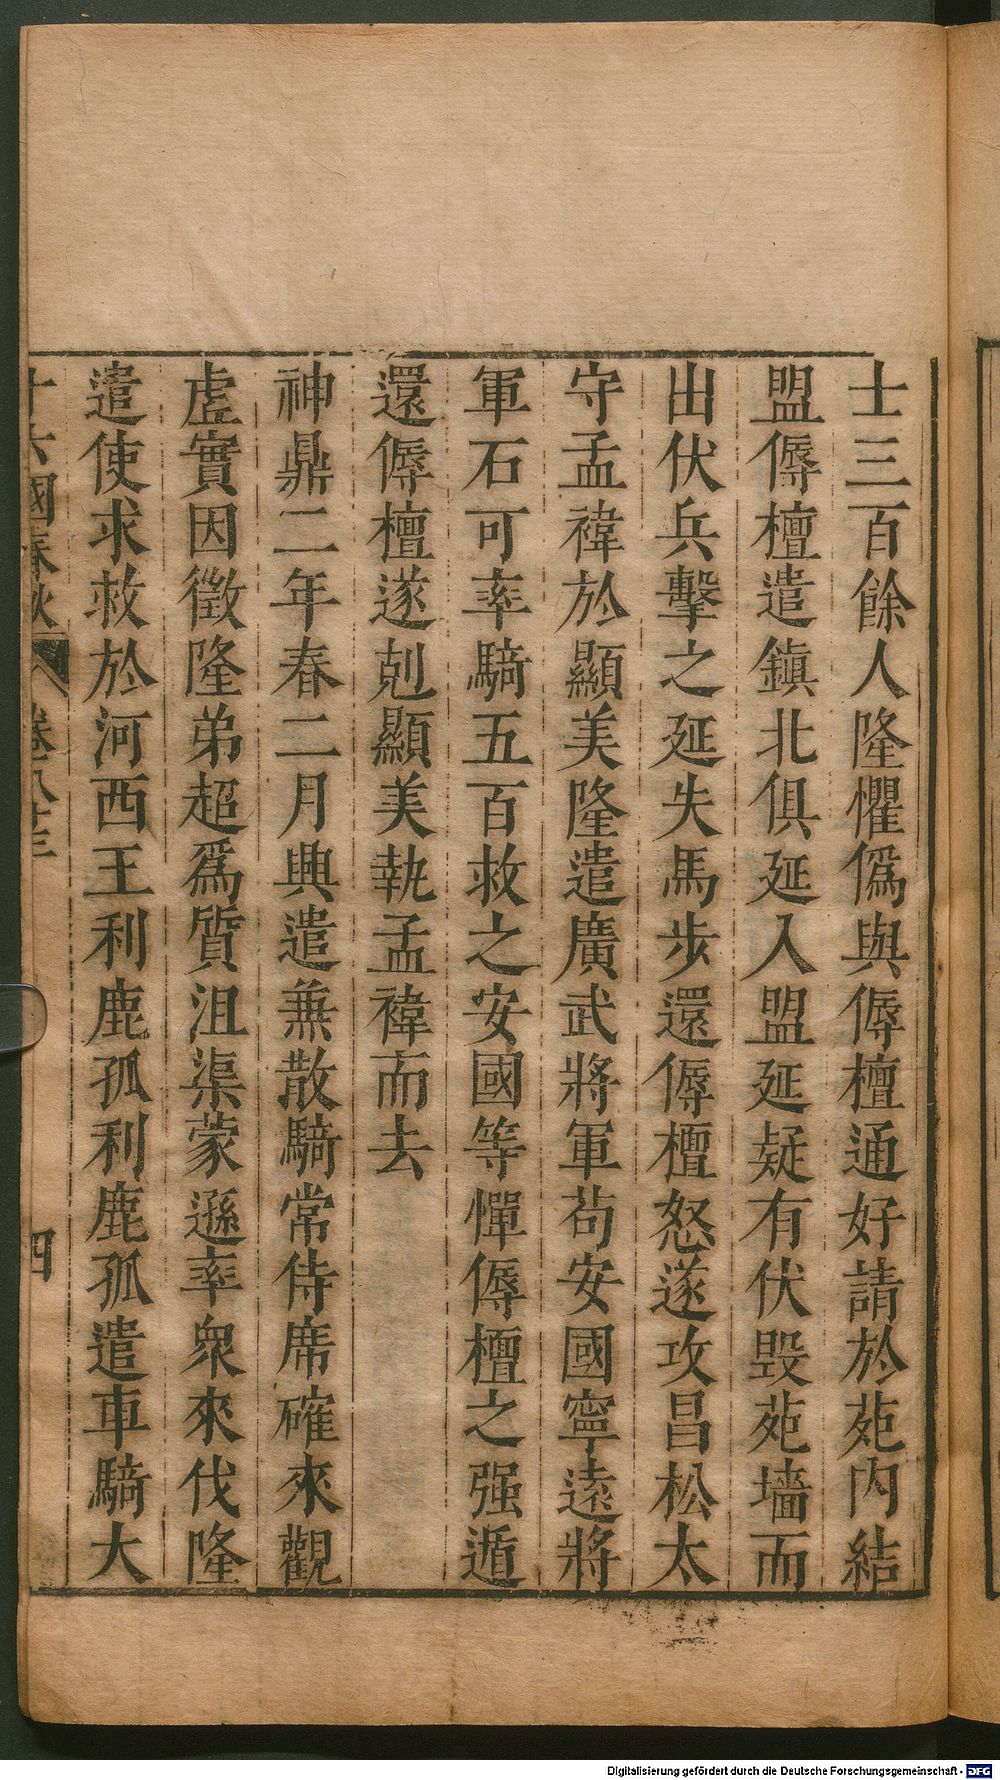 士三百餘人隆懼僞與傉檀通好請於苑内結
盟傉檀遣鎮北俱延入盟延疑有伏毀苑墻而
出伏兵擊之延失馬步還傉檀怒遂攻昌松太
守孟禕於顯美隆遣廣武將軍苟安國寧遠將
軍石可率騎五百救之安國等憚傉檀之强遁
還傉檀遂剋顯美執孟禕而去
神鼎二年春二月興遣兼散騎常侍席確來觀
虛實因徵隆弟超爲質沮渠蒙遜率衆來伐隆
遣使求救於河西王利鹿孤利鹿孤遣車騎大
十六國春秋 卷八十三 四
Digitalisierung gefördert durch die Deutsche Forschungsgemeinschaft - DFG